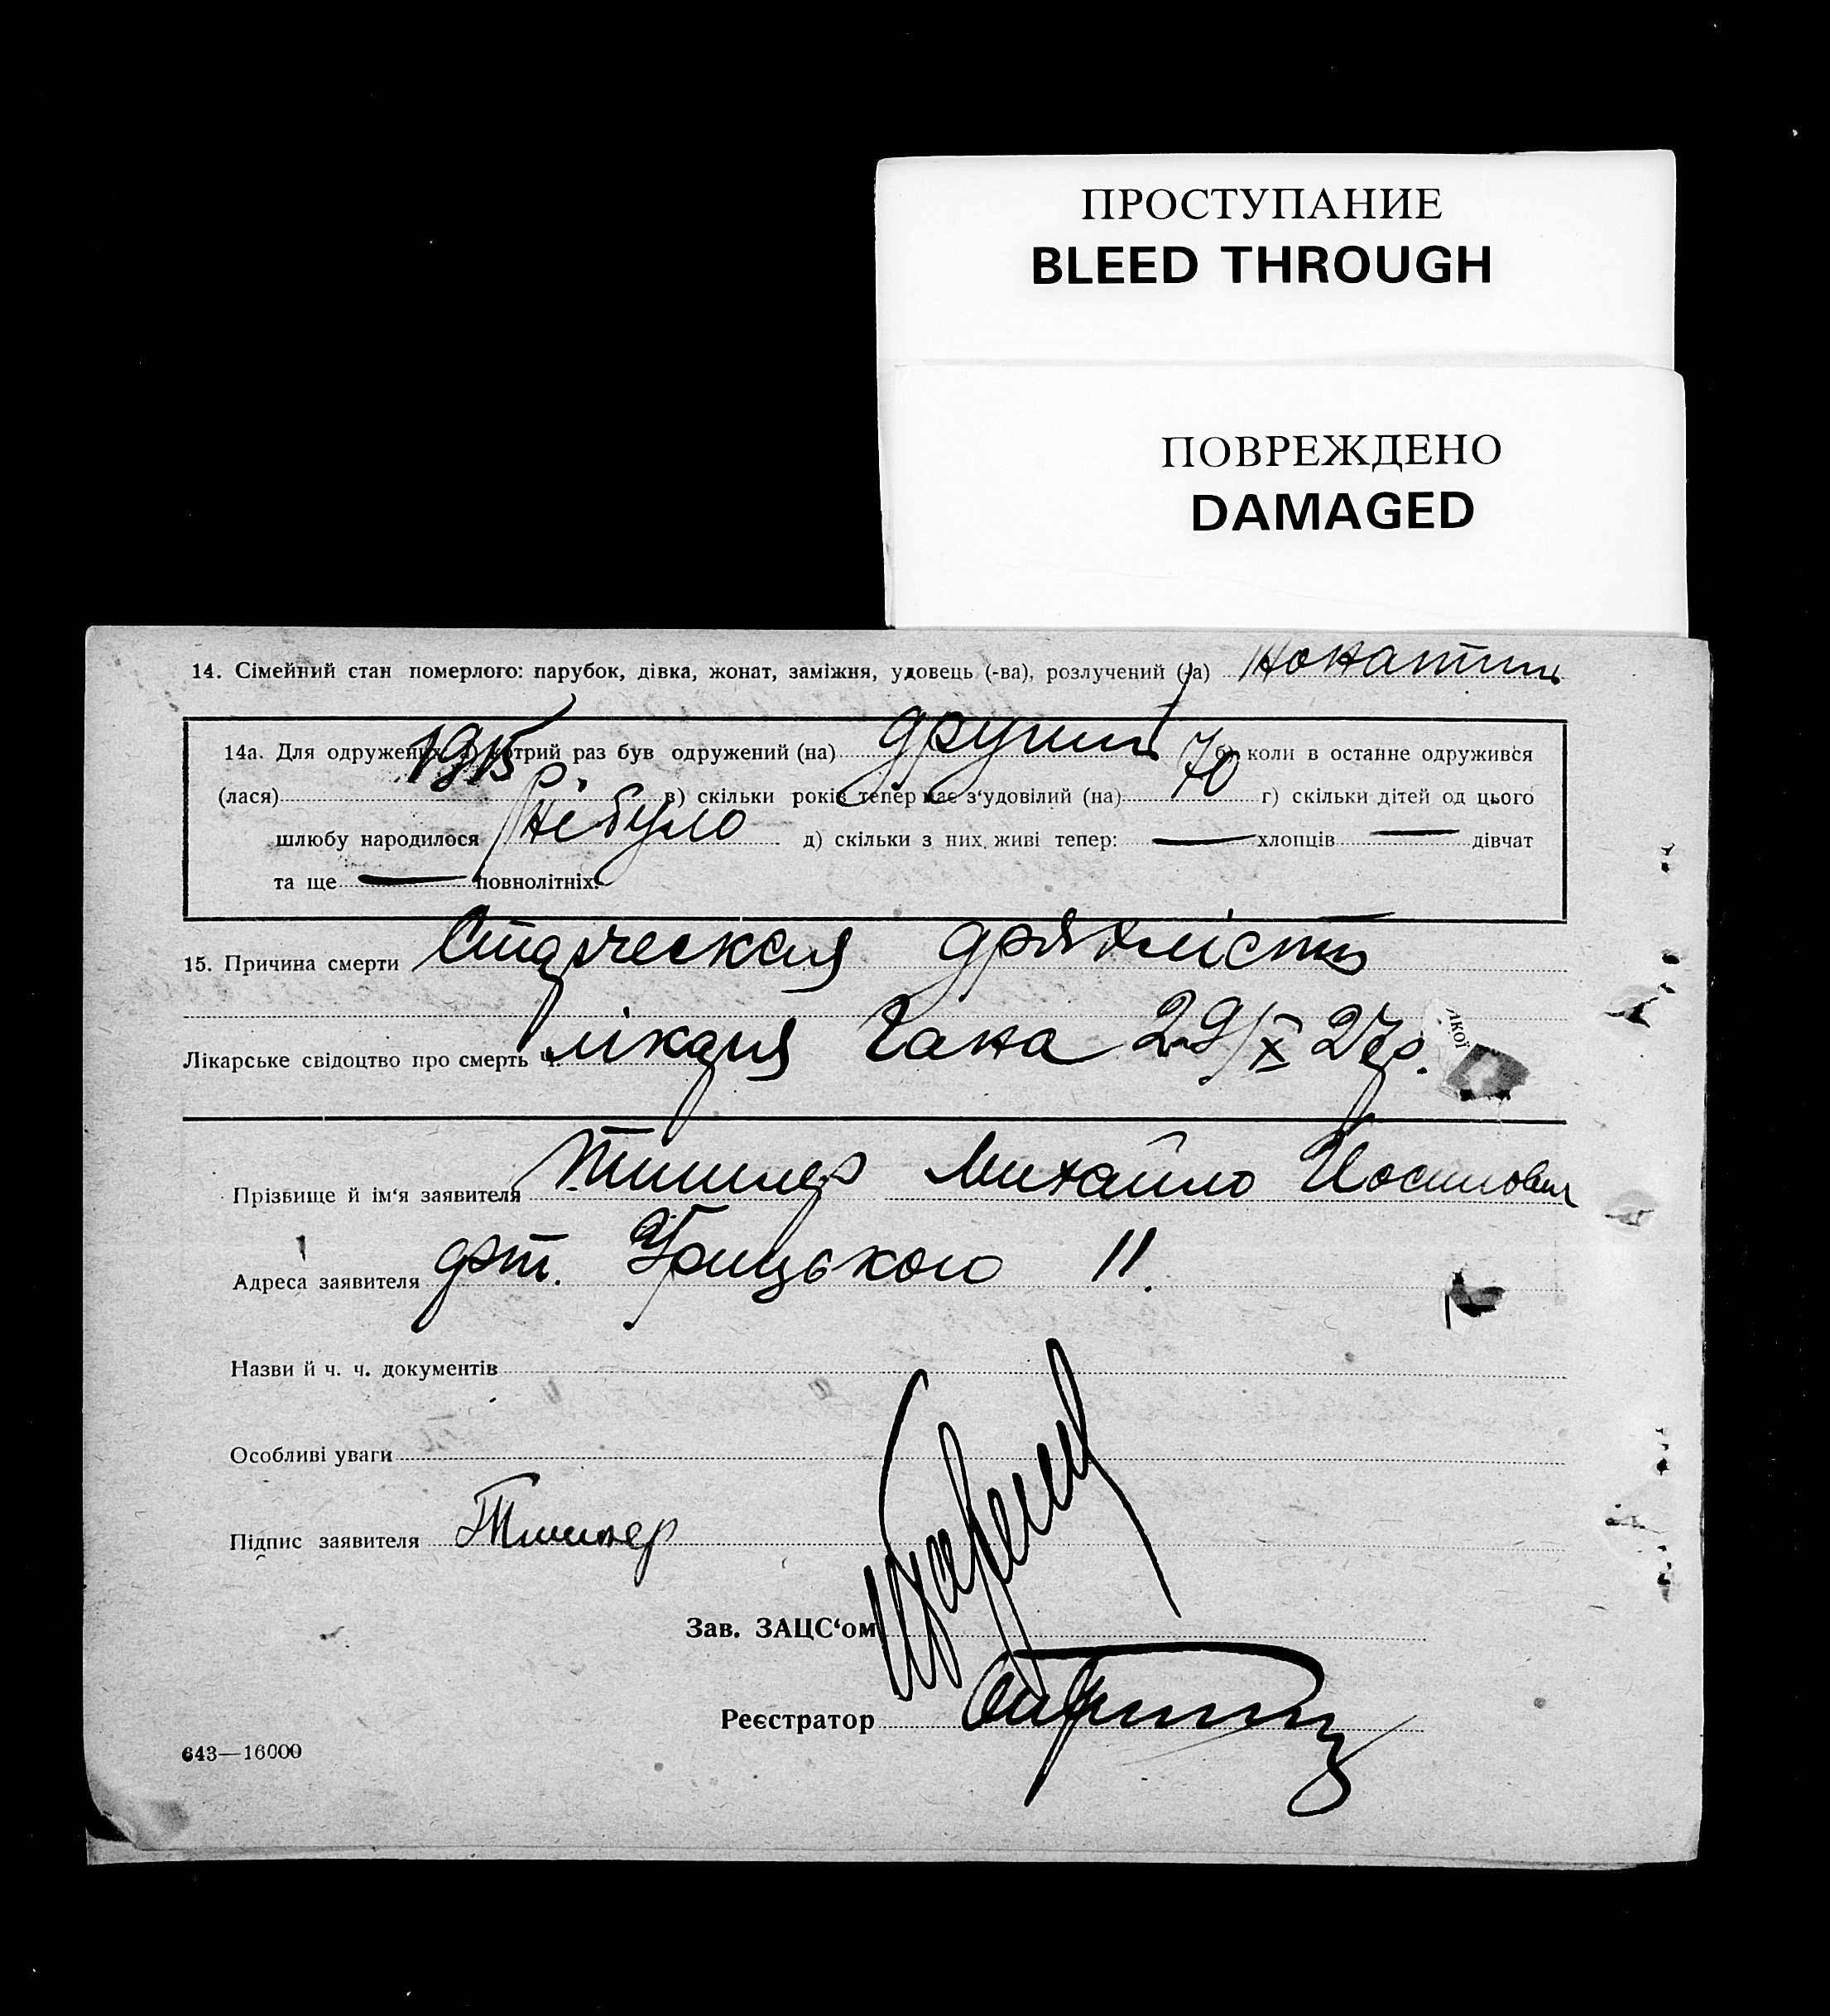 ПРОСТУПАНИЕ
BLEED THROUGH
ПОВРЕЖДЕНО
DAMAGED
14. Сімейний стан померлого: парубок, дівка, жонат, заміжня, удовець (-ва), розлучений (-а) жонатий
14а. Для одружених: а) котрий раз був одружений (на) другий б) коли в останне одружився
(лася) 1915 р. в) скільки років тепер має з‘удовілий (на) 70 г) скільки дітей од цього
шлюбу народилося не було д) скільки з них живі тепер: — хлопців — дівчат
та ще — повнолітніх.
15. Причина смерти Старческая дряхлість
Лікарське свідоцтво про смерть ч. лікаря Гана 29/X 27 р.
якої
Прізвище й ім‘я заявителя Тишлер Михайло Йосипович
Адреса заявителя Урицького 11.
Назви й ч. ч. документів
Особливі уваги
Підпис заявителя Тишлер
Зав. ЗАЦС‘ом
Реєстратор
643—16000